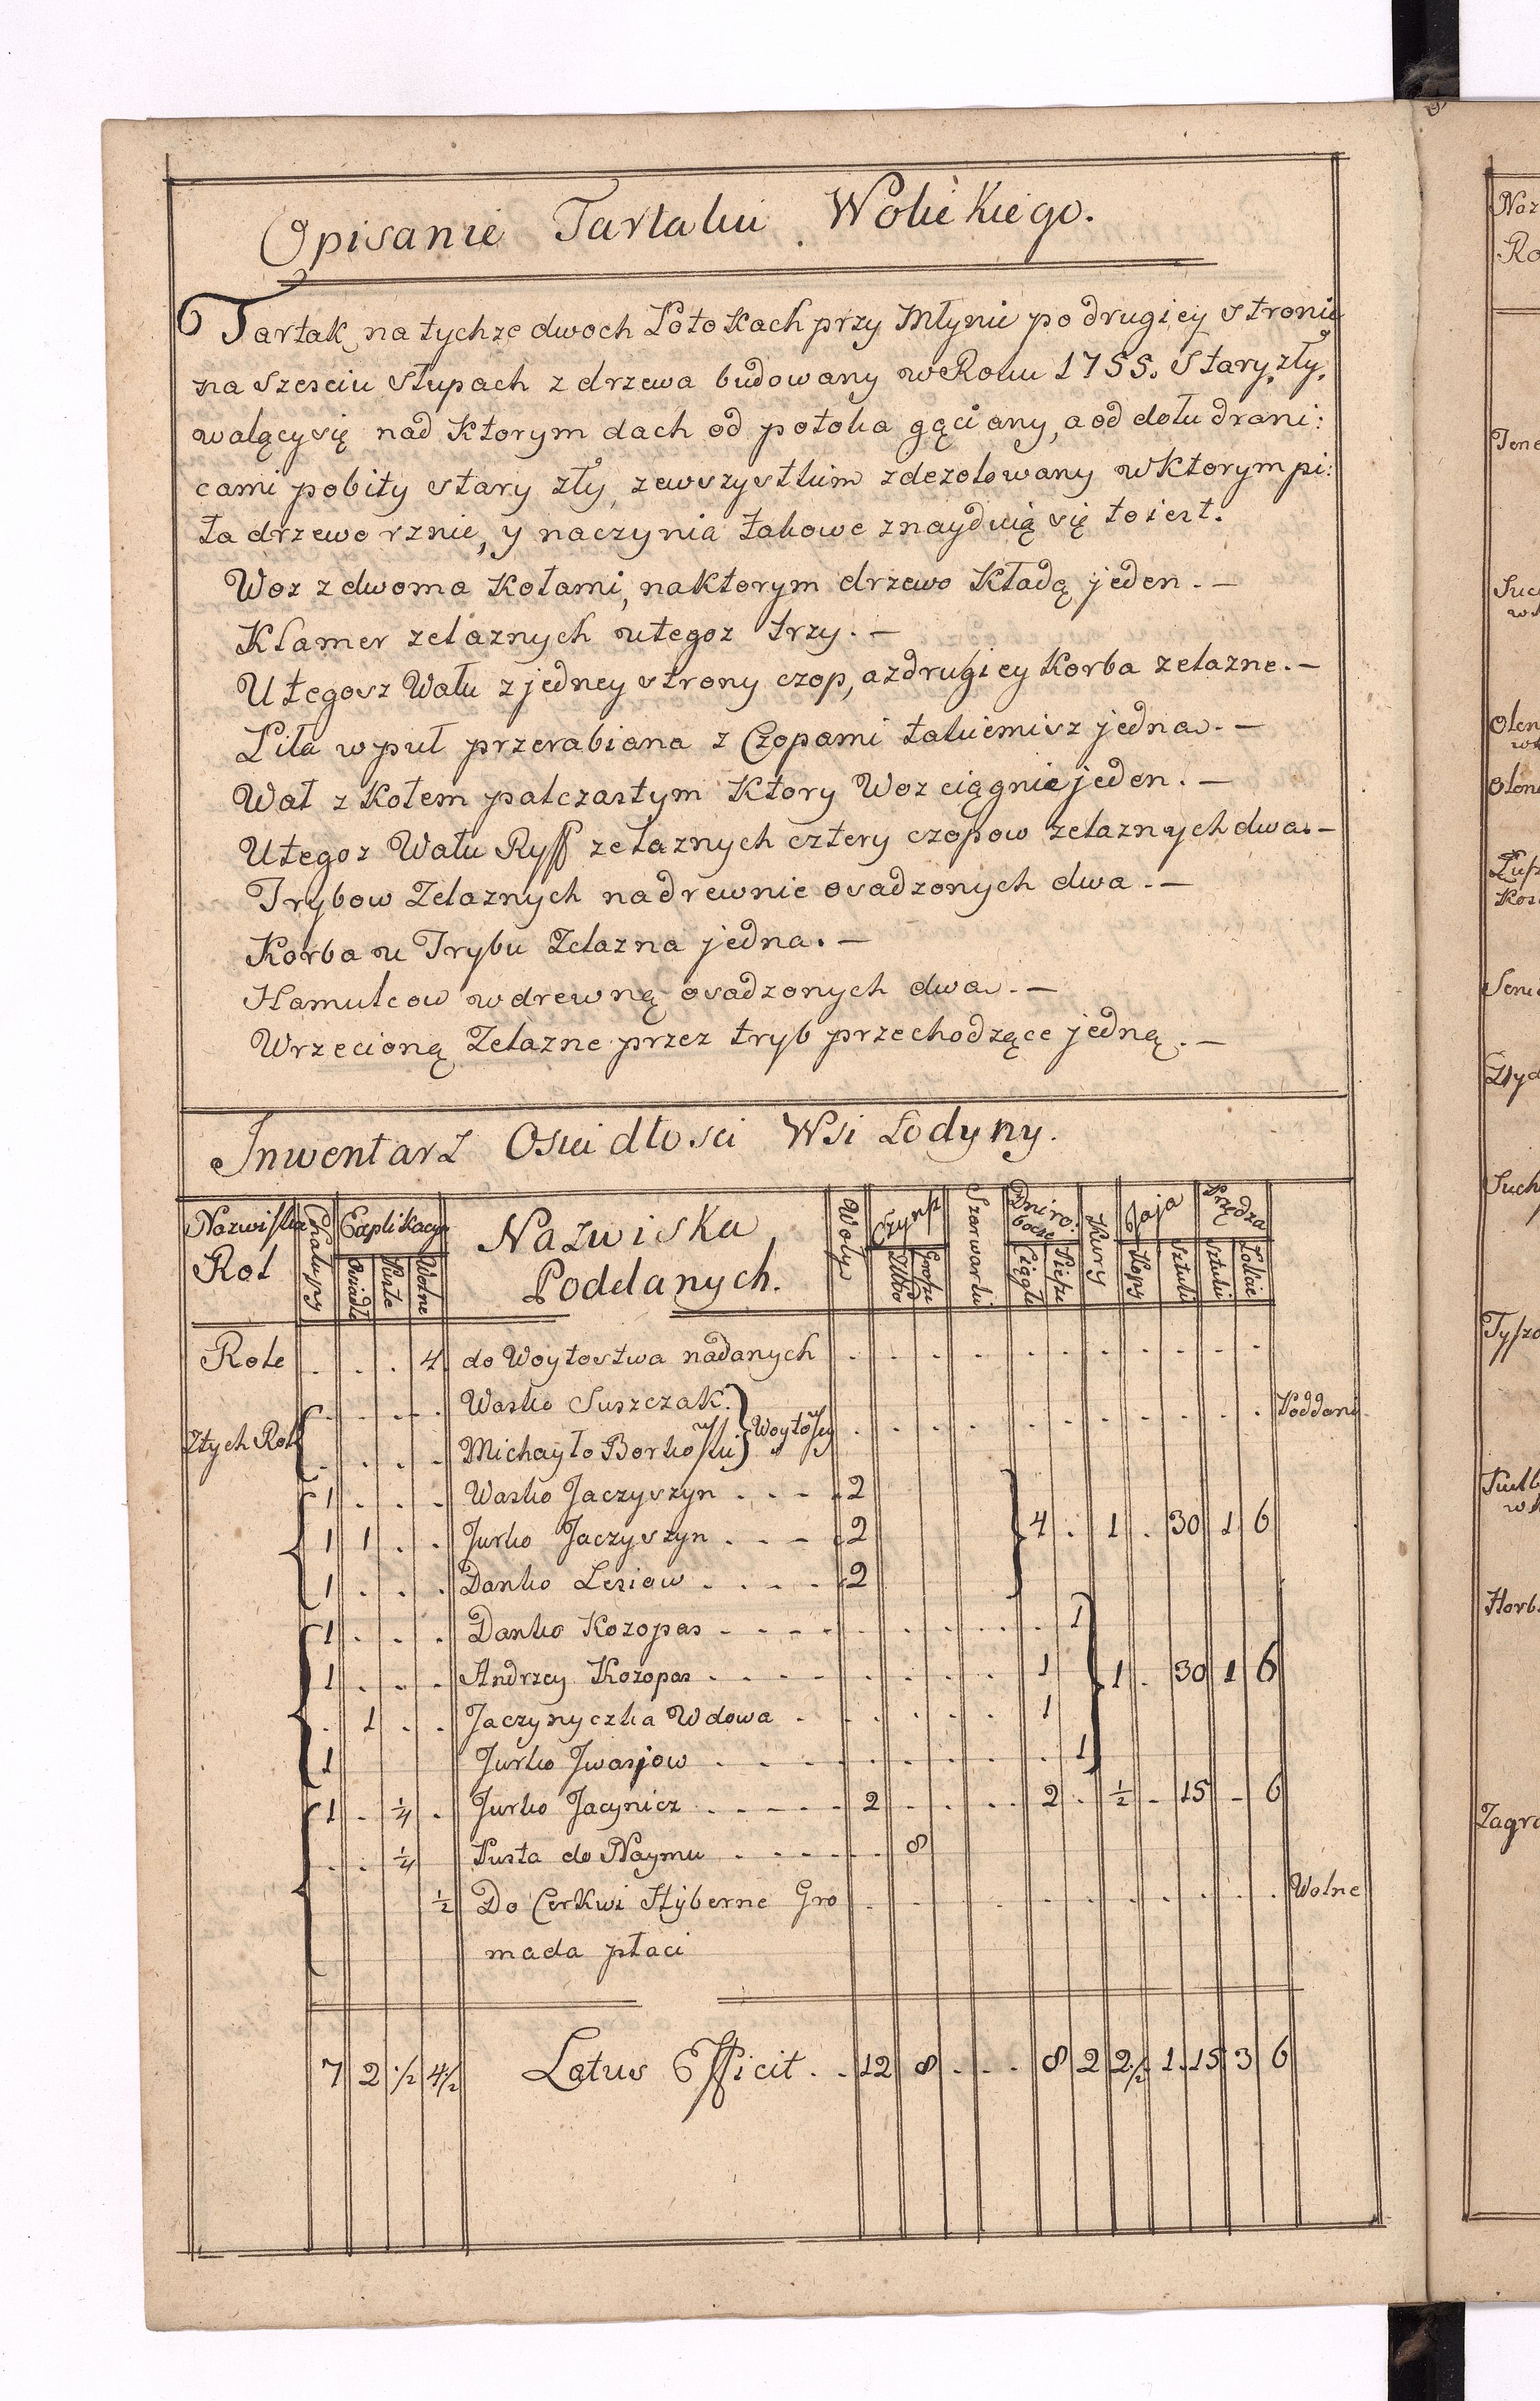 Opisanie Tartaku Wolickiego.
Tartak na tychze dwoch Lotokach przy Młynie po drugiey stronie
na szesciu słupach z drzewa budowany w Roku 1755. Stary, zły,
walący się nad ktorym dach od potoka gąciany, a od dołu drani:
cami pobity stary zły, zewszystkim zdezolowany w ktorym pi:
ła drzewo rznie, y naczynia takowe znayduią się to iest.
Woz z dwoma kołami, na ktorym drzewo kładą jeden. —
Klamer zelaznych u tegoz trzy. —
U tegosz Wału z jedney strony czop, a z drugiey Korba zelazne. —
Piła w puł przerabiana z Czopami takiemisz jedna. —
Wał z Kołem palczastym Ktory Woz ciągnie jeden. —
U tegoz Wału Ryff zelaznych cztery czopow zelaznych dwa. —
Trybow Zelaznych na drewnie osadzonych dwa. —
Korba u Trybu Zelazna jedna. —
Hamulcow w drewną osadzonych dwa. —
Wrzecioną Zelazne przez tryb przechodzące jedną. —
Inwentarz Osiadłosci Wsi Lodyny.
Nazwiska Rol Chałupy Explikacya Nazwiska Poddanych. Woły Czynsz Szarwarki Dni robocze Kury Jaja Przędza
Osiadłe Puste Wolne Złłwo Grosze Ciągłe Piesze Kopy Sztuki Sztuki Łokcie
Role . . . 4 do Woytostwa nadanych
Wasko Suszczak. Woytosky Poddani
Złych Rol Michayło Borkowski
1 . . . Wasko Jaczyszyn . . . . 2
1 1 . . Jurko Jaczyszyn . . . . 2 4 . 1 . 30 1 6
1 . . . Danko Lesiow . . . . 2
1 . . . Danko Kozopas . . . . 1
1 . . . Andrzey Kozopas . . . . 1 1 . 30 1 6
. 1 . . Jaczynyczka Wdowa . . . 1
1 Jurko Jwasjow . . . . 1
1 . 1/4 . Jurko Jacynicz . . . . . 2 . . . . 2 . 1/2 . 15 - 6
. . 1/4 Pusta do Naymu . . . . . . 8
1/2 Do Cerkwi Hyberne Gro . . . . Wolne
mada płaci
7 2 1/2 4 1/2 Latus Efficit . . 12 8 . . . 8 2 2 1/2 1 . 15 3 6